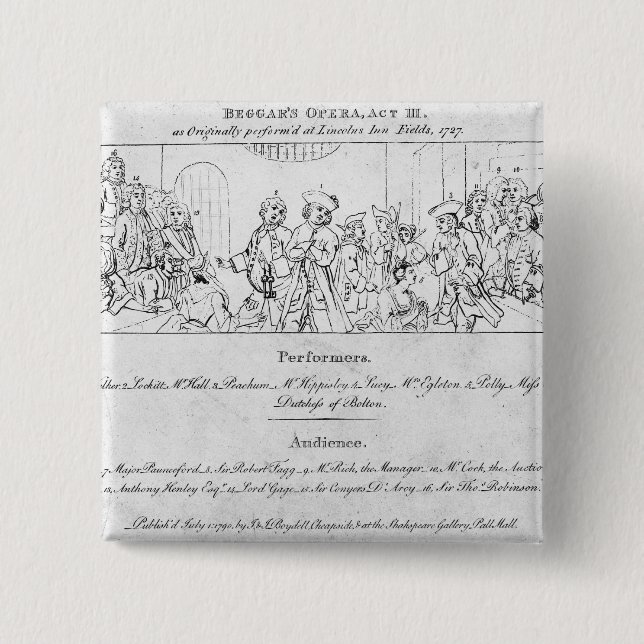 BEGGAR'S OPERA, ACT III.
as Originally perform'd at Lincolns Inn Fields, 1727.
16
14
15
2
3
11
9
10
13
5
Performers.
lker. 2 Lockitt Mr. Hall. 3 Peachum_Mr. Hippisley. 4_Lucy_Mrs. Egleton. 5_Polly_Mess
Dutchess of Bolton.
Audience.
7_Major Paunceford_8. Sir Robert Fagg_9. Mr. Rich, the Manager_10. Mr. Cock, the Auctio
13, Anthony Henley Esqr. 14 Lord Gage_15. Sir Conyers D'Arcy_16, Sir Thos. Robinson.
Publish'd July 1: 1790, by J. & J. Boydell, Cheapside, & at the Shakspeare Gallery, Pall Mall.